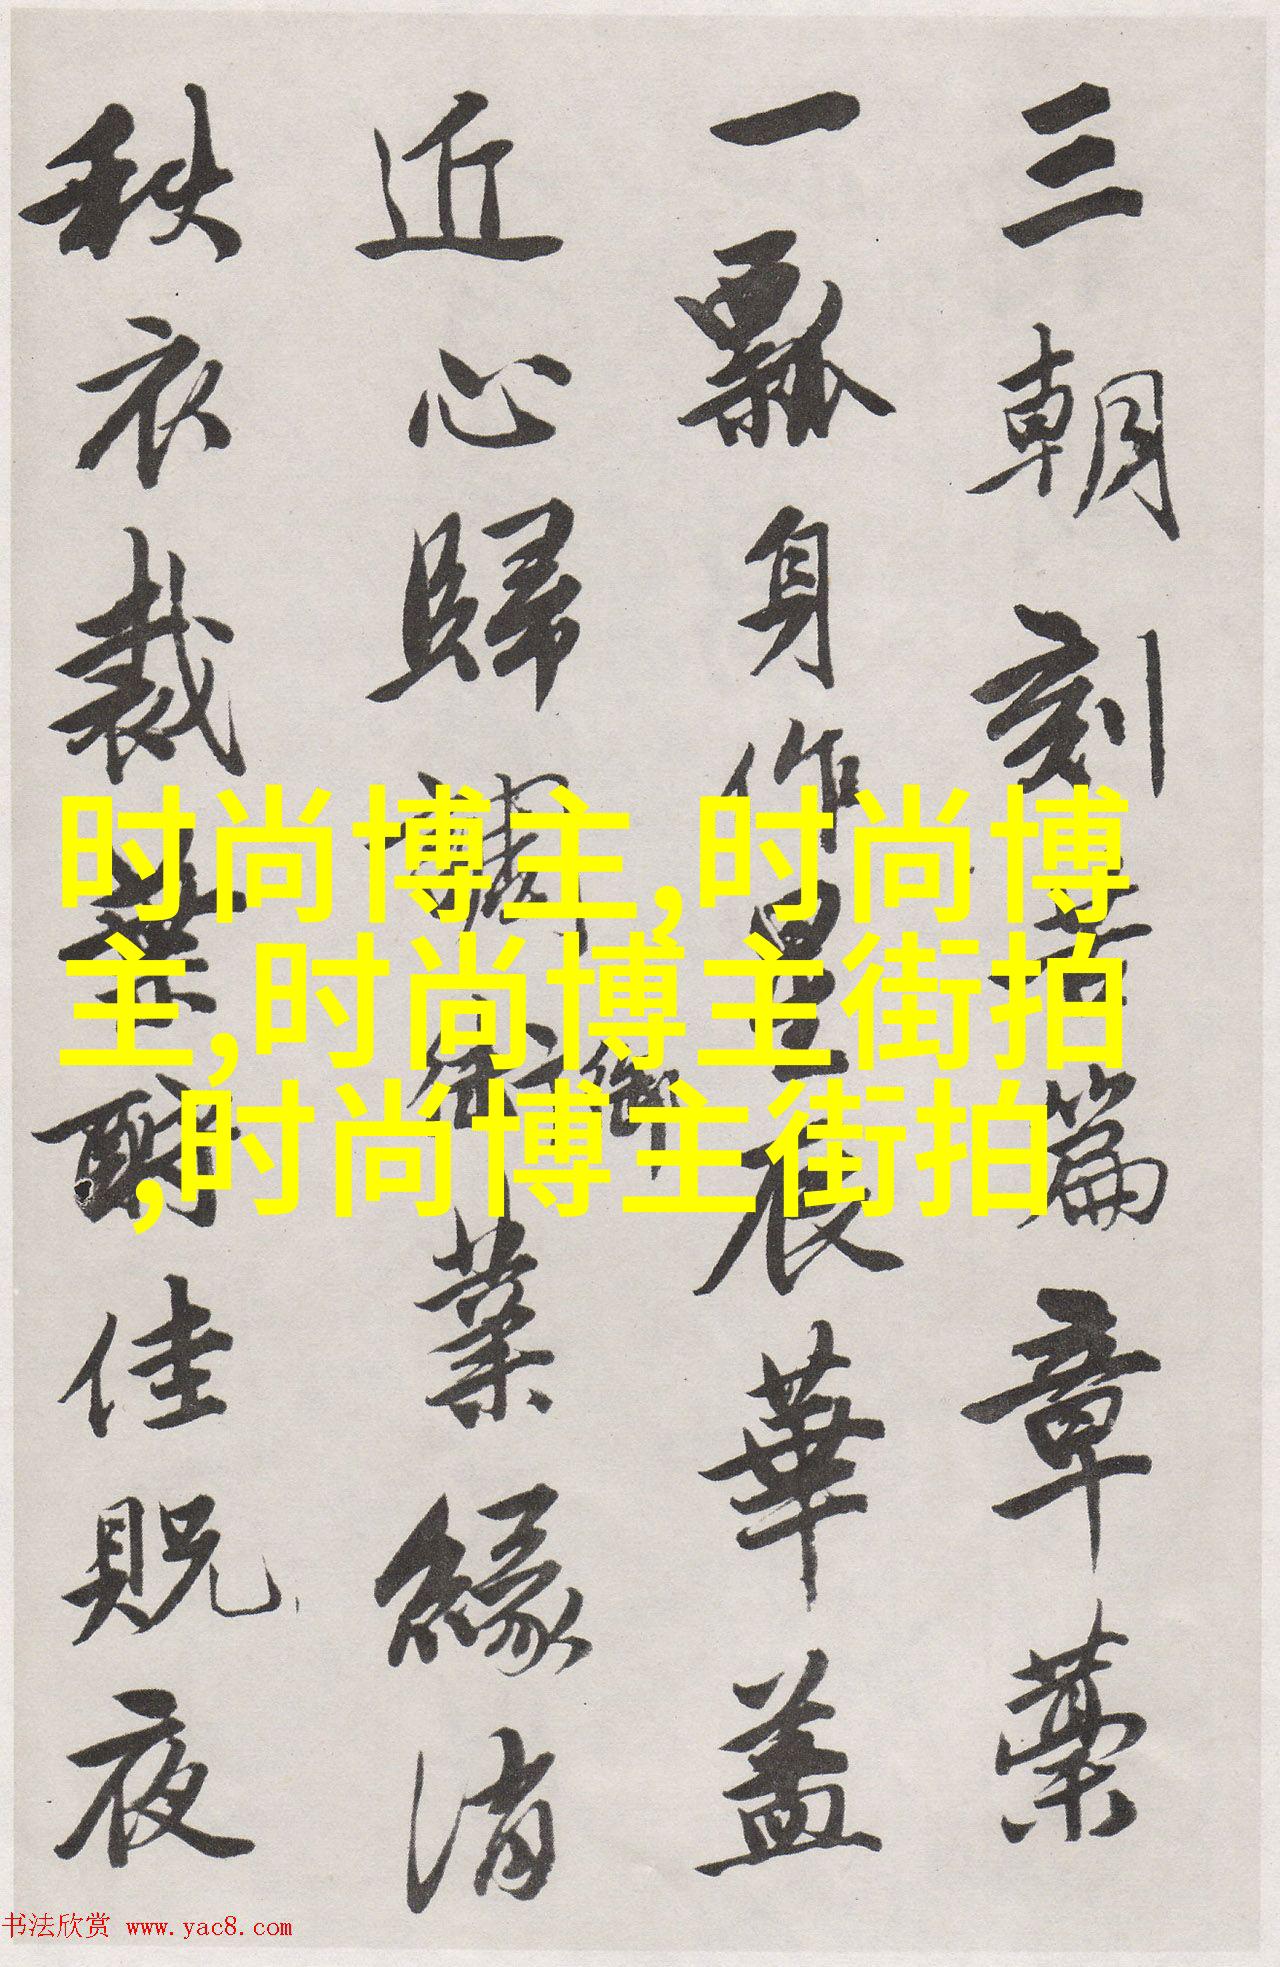 三朝刻苦篇章藁
一瓢身作星辰華蓋
近心歸闢術業緣消
秩衣裁葉酬佳貺夜
时尚博主,时尚博
主,时尚博主街拍
,时尚博主街拍
书法欣赏 www.yac8.com